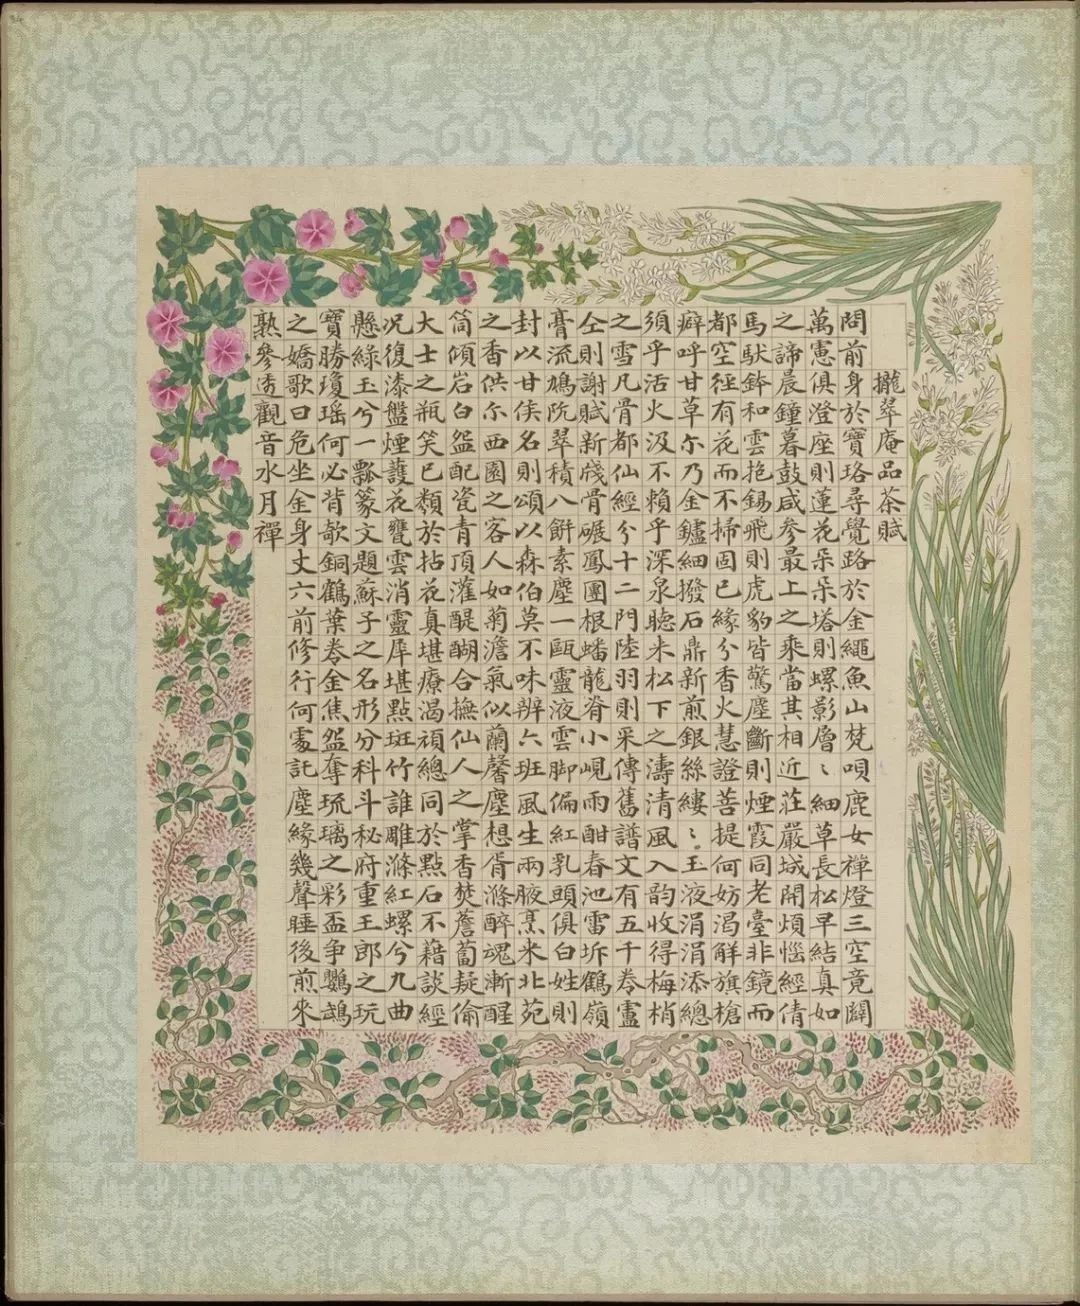 攏翠庵品茶賦
問前身於寶珞尋覺路於金繩魚山梵唄鹿女禪燈三空竟闢
萬慮俱澄座則蓮花朵朵塔則螺影層〻細草長松早結真如
之諦晨鐘暮鼓咸參最上之乘當其相近莊嚴城開煩惱經倩
馬馱鉢和雲抱錫飛則虎豹皆驚塵斷則煙霞同老臺非鏡而
都空徑有花而不掃固已緣分香火慧證菩提何妨渴解旗槍
癖呼甘草尔乃金鑪細撥石鼎新煎銀絲縷〻玉液涓涓添總
須乎活火汲不賴乎深泉聽来松下之濤清風入韵收得梅梢
之雪凡骨都仙經分十二門陸羽則采傳舊譜文有五千卷盧
仝則謝賦新牋骨碾鳳團根蟠龍脊小峴雨酣春池雷坼鶴嶺
膏流鳩阬翠積八餅素塵一甌靈液雲脚偏紅乳頭俱白姓則
封以甘侯名則頌以森伯莫不味辨六班風生兩腋烹来北苑
之香供尔西園之客人如菊澹氣似蘭馨塵想胥滌醉魂漸醒
筒傾岩白盌配瓷青頂灌醍醐合撫仙人之掌香焚薝蔔疑偷
大士之瓶笑已類於拈花真堪療渴頑總同於點石不藉談經
况復漆盤煙護花甕雲消靈犀堪點斑竹誰雕滌紅螺兮九曲
懸綠玉兮一瓢篆文題蘇子之名形分科斗秘府重王郎之玩
寶勝瓊瑶何必背欹銅鶴葉卷金焦盌奪琉璃之彩盃争鸚鵡
之嬌歌曰危坐金身丈六前修行何處託塵緣幾聲睡後煎来
熟參透觀音水月禪